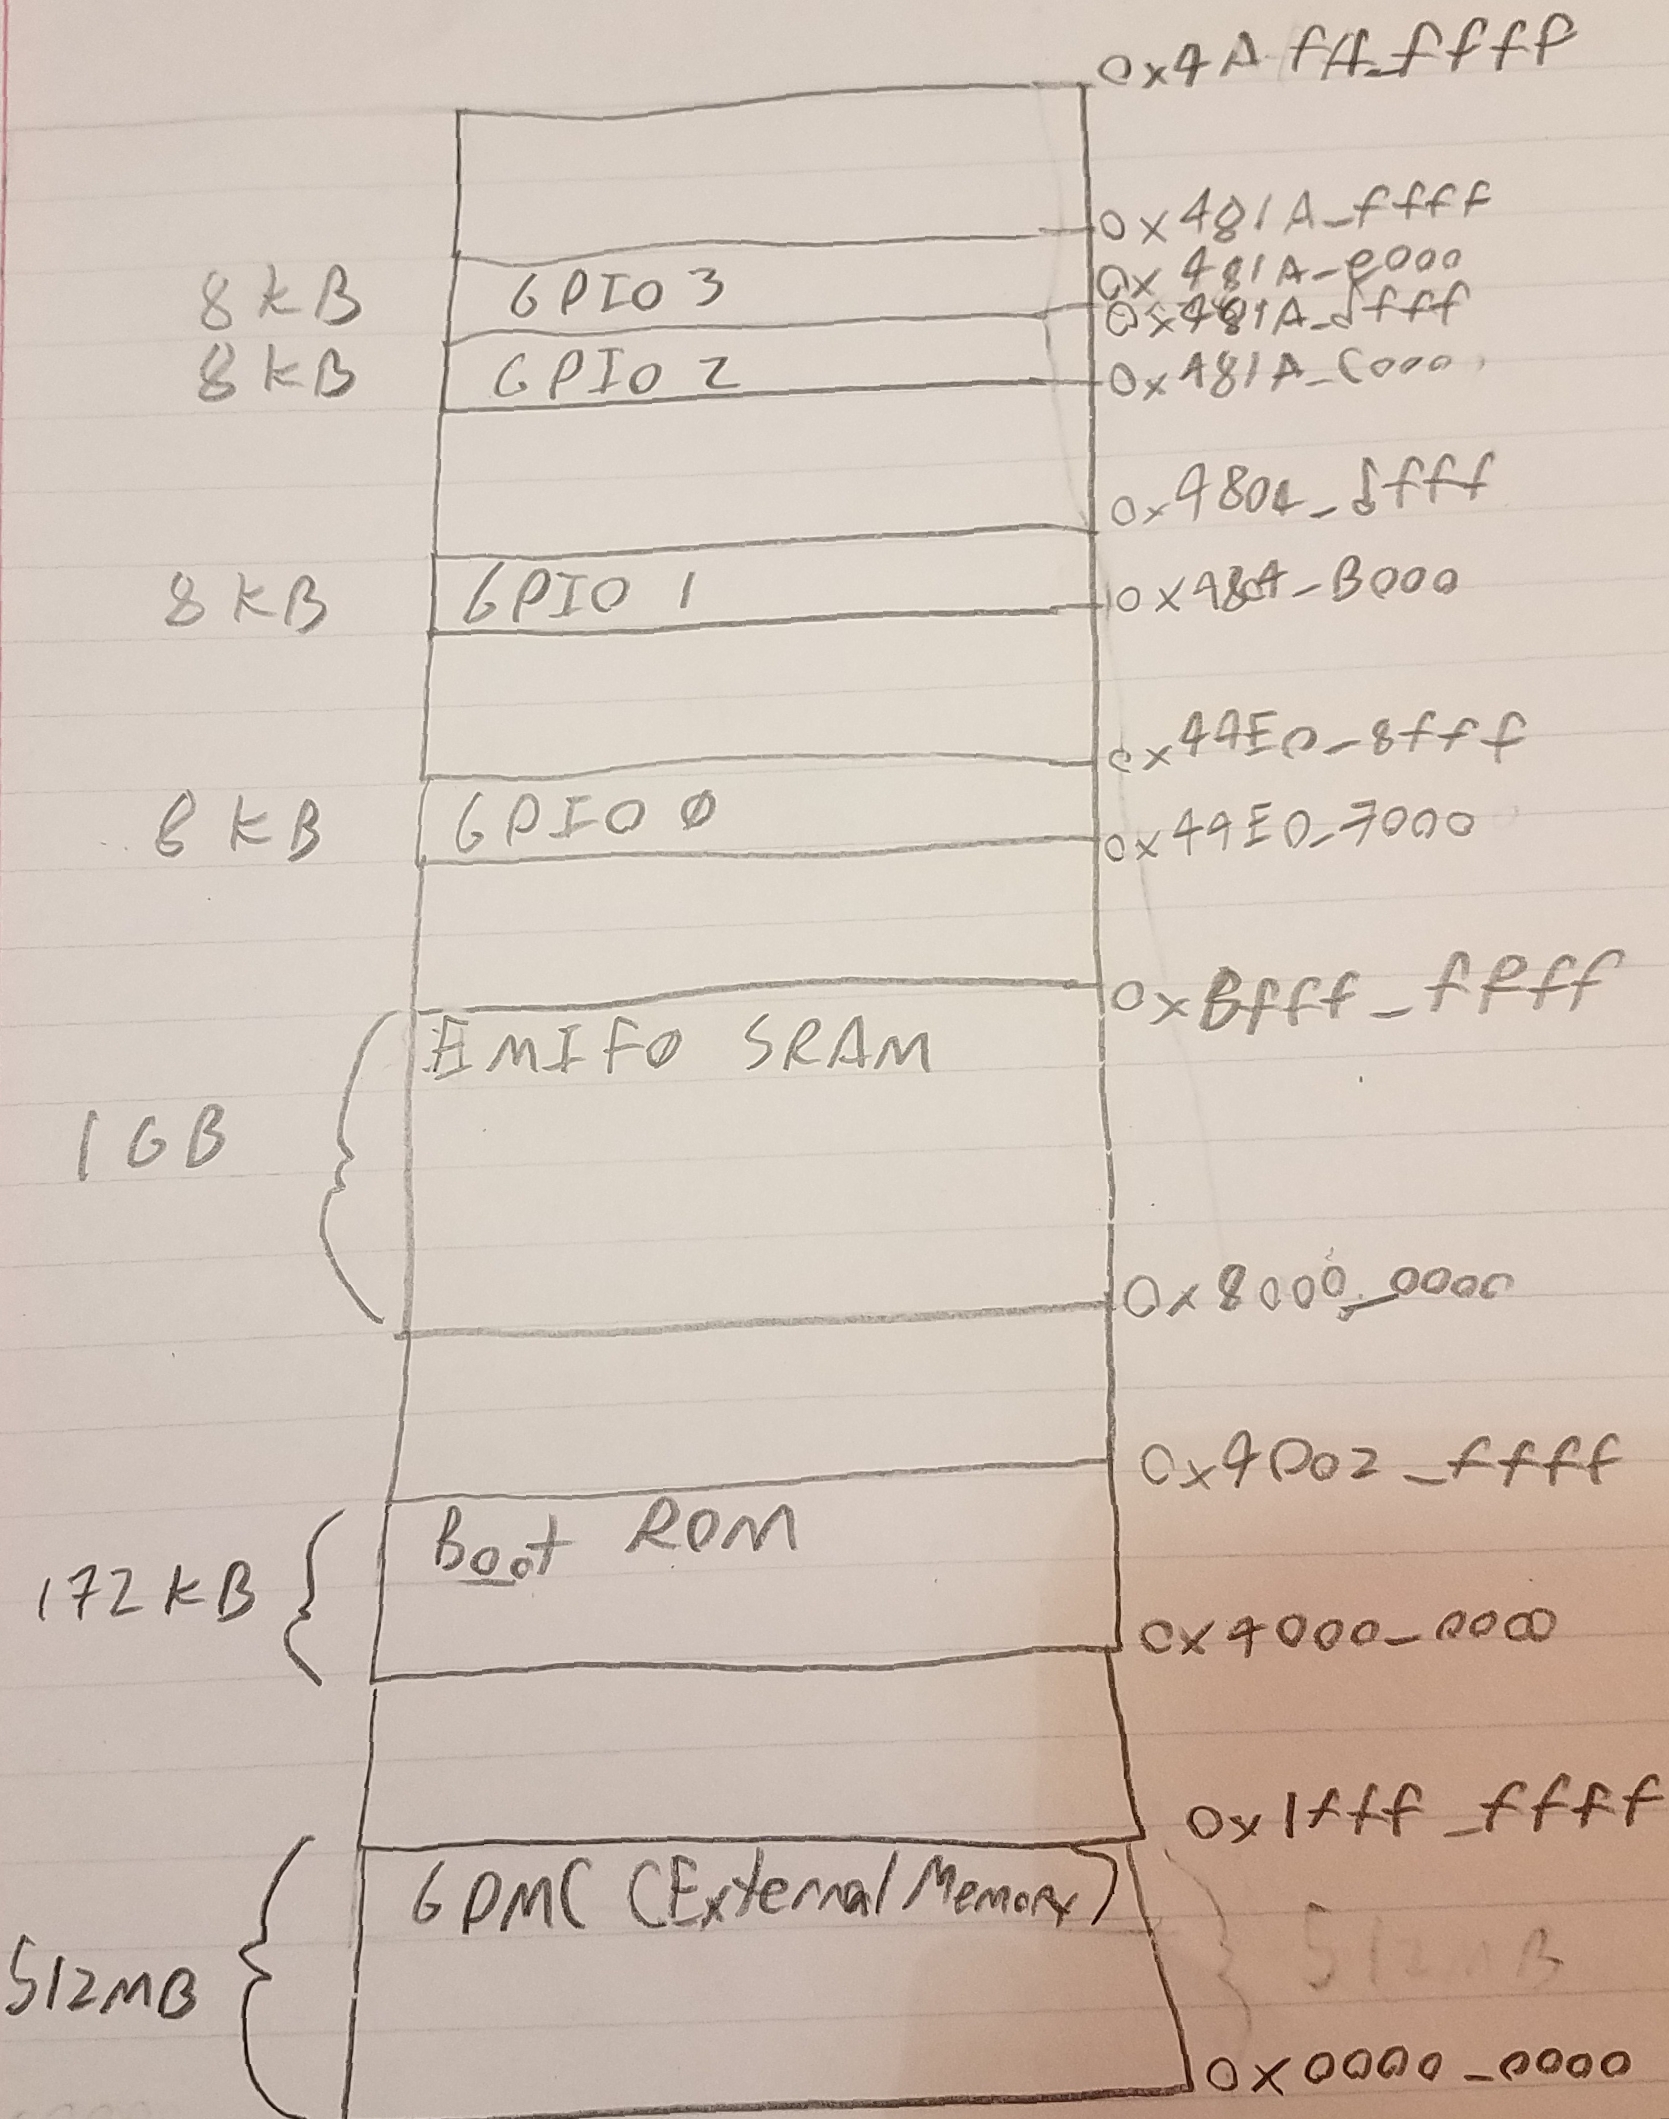 0x4Aff_ffff
0x481A_ffff
8 KB GPIO 3 0x481A_e000
0x481A_dfff
8 KB GPIO 2 0x481A_C000
0x4804_dfff
8 KB GPIO 1 0x4804_B000
0x44E0_8fff
8 KB GPIO 0 0x44E0_7000
0xBfff_ffff
EMIF0 SRAM
1 GB
0x8000_0000
0x4002_ffff
Boot ROM
172 KB
0x4000_0000
0x1fff_ffff
GPMC (External Memory)
512MB 512MB
0x0000_0000